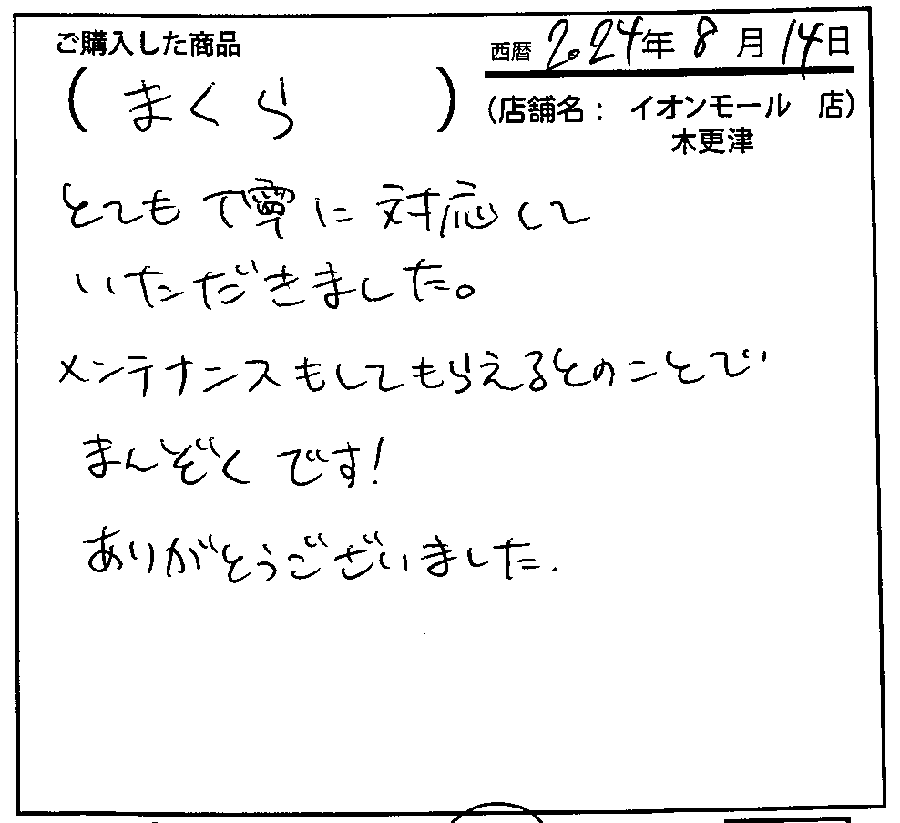 ご購入した商品
西暦 2024年 8月 14日
(まくら)
(店舗名： イオンモール 店)
木更津
とても丁寧に対応して
いただきました。
メンテナンスもしてもらえるとのことで
まんぞくです!
ありがとうございました.